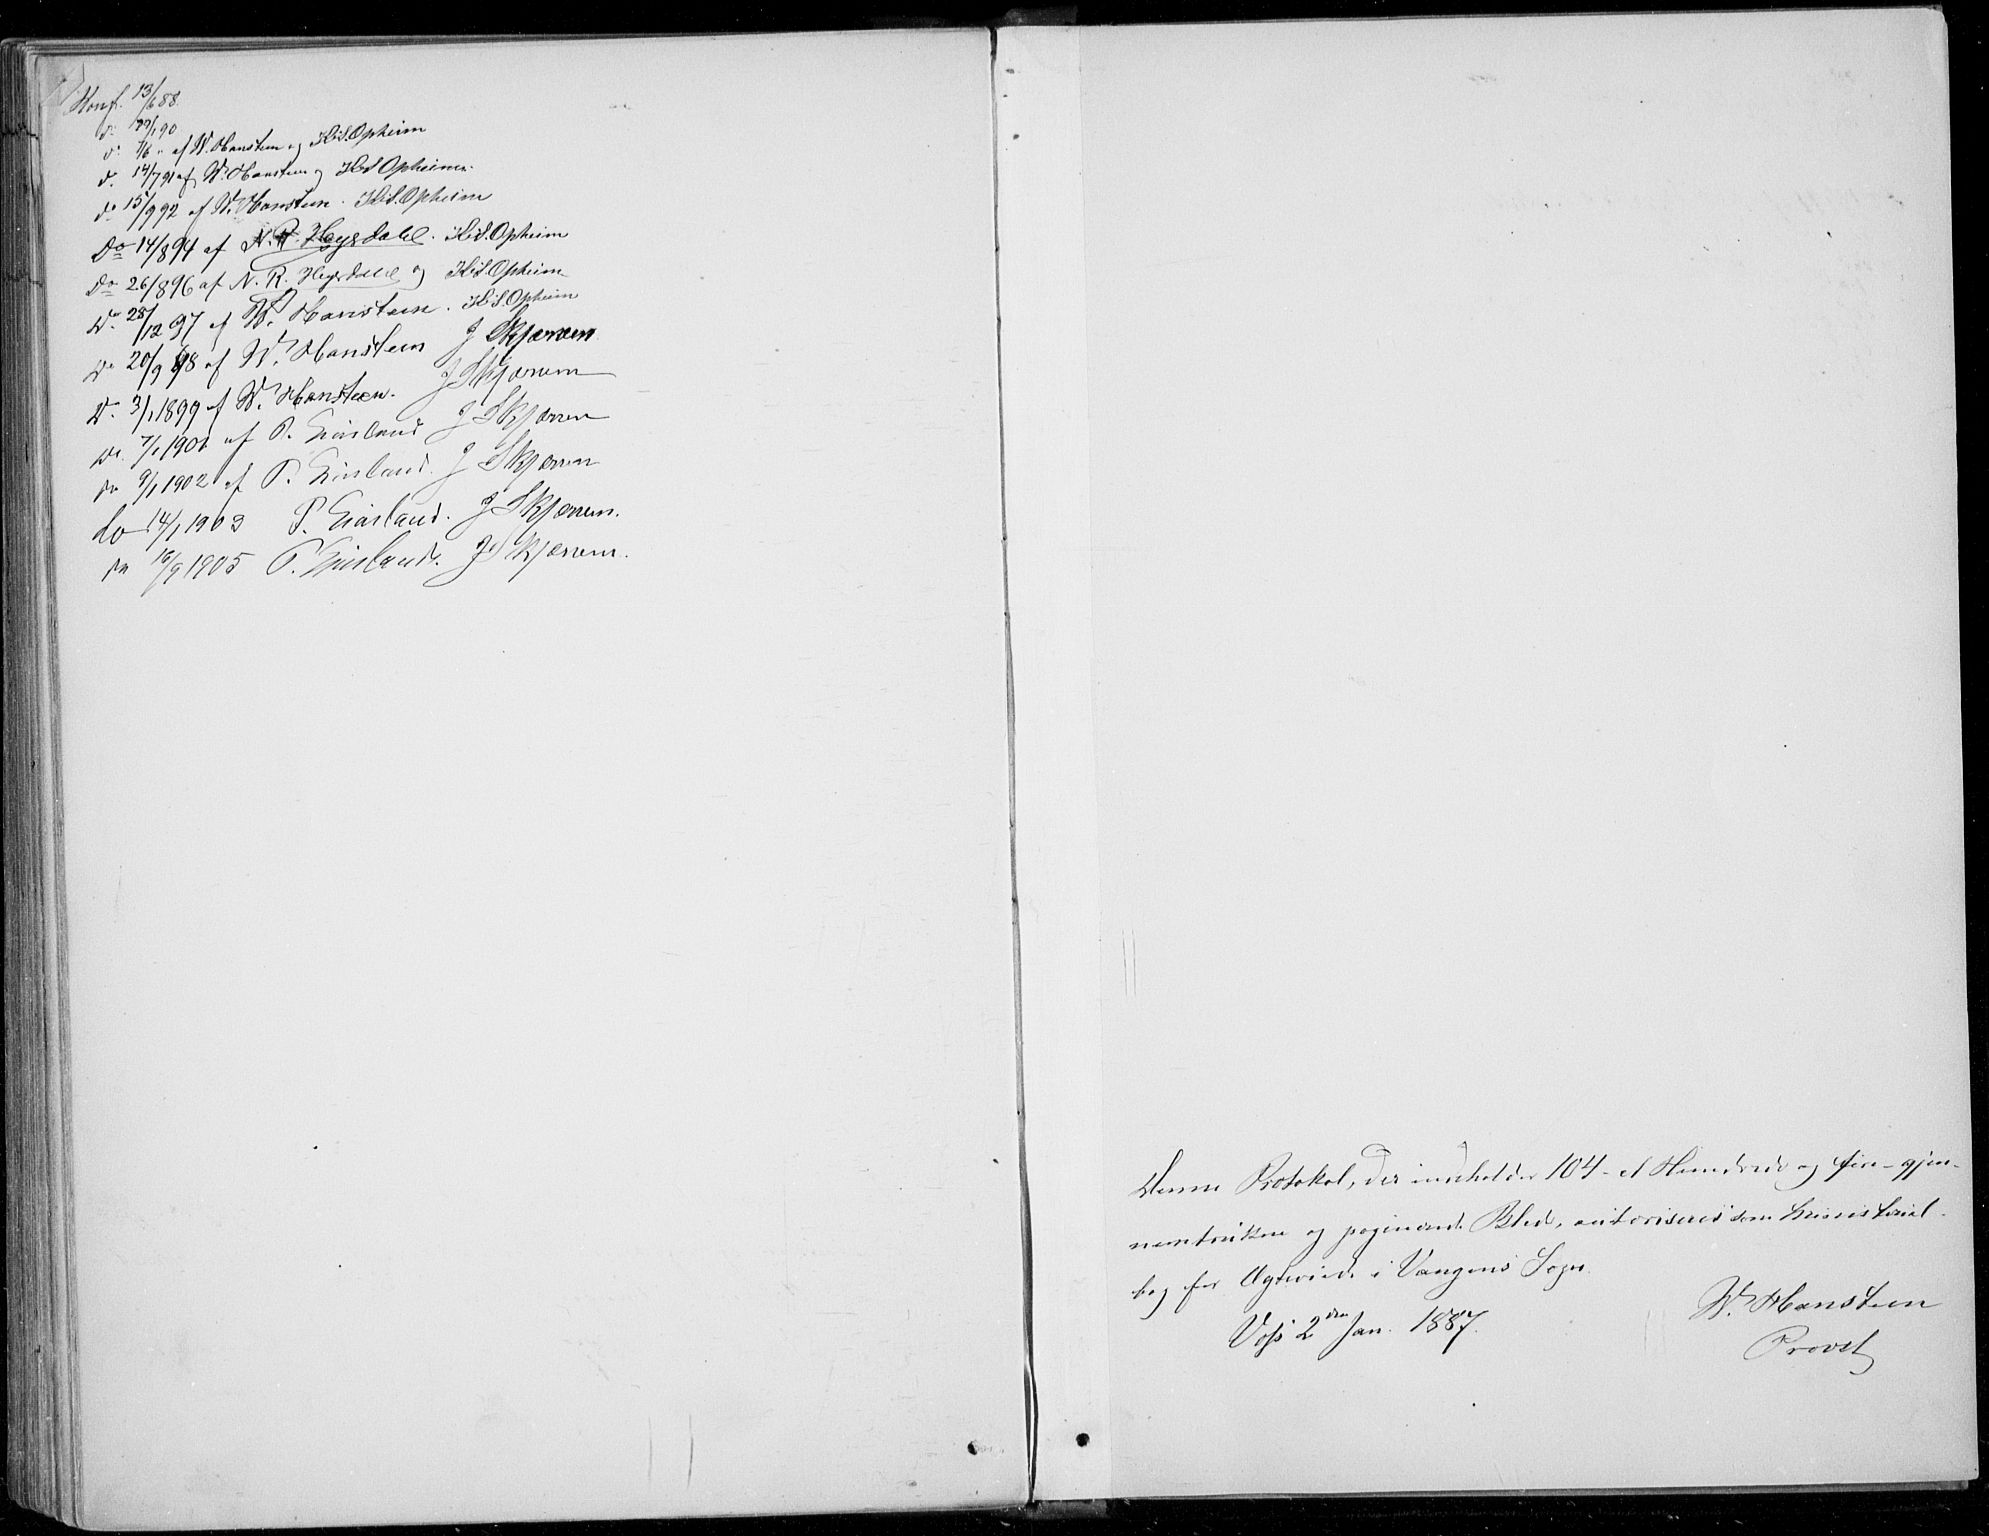 Konf. 13/6 88.
do 27/1 90
do 7/6 " af W. Hansteen og Kls. Opheim
do 14/7 91 af W. Hansteen og Kls Opheim
do 15/9 92 af W. Hansteen. Kls. Opheim
Do 14/8 94 af N. R. Høyrdahl. Kls. Opheim
Do 26/8 96 af N. R. Høyrdahl og Kls. Opheim
Do 28/12 97 af W. Hansteen. Kls. Opheim
Do 20/9 98 af W. Hansteen J Skjerven
Do 3/1 1899 af W. Hansteen. J Skjerven
Do 7/1 1901 af P. J Skjerven
Do 9/1 1902 af P. J Skjerven
do 14/1 1903 P. J Skjerven.
Do 16/9 1905 P. J Skjerven.
Denne Protokol, der indeholder 104 - et Hundrede og fire - gjen-
nemtrukne og paginerede Blade, autoriseres som Ministerial-
bog for Ægteviede i Vangens Sogn.
Voss 2den Jan. 1887.
W. Hansteen
Provst